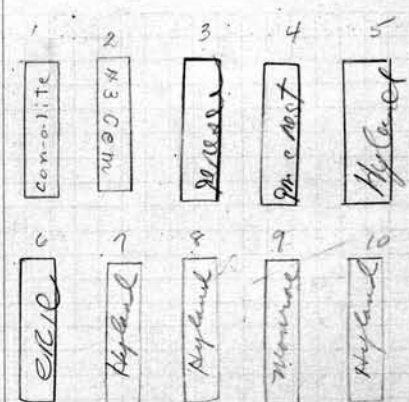 1 2 3 4 5
con-o-lite
#3 Cem
Genesee
Hyland
6 7 8 9 10
ERIE
Hyland
Hyland
Monroe
Hyland